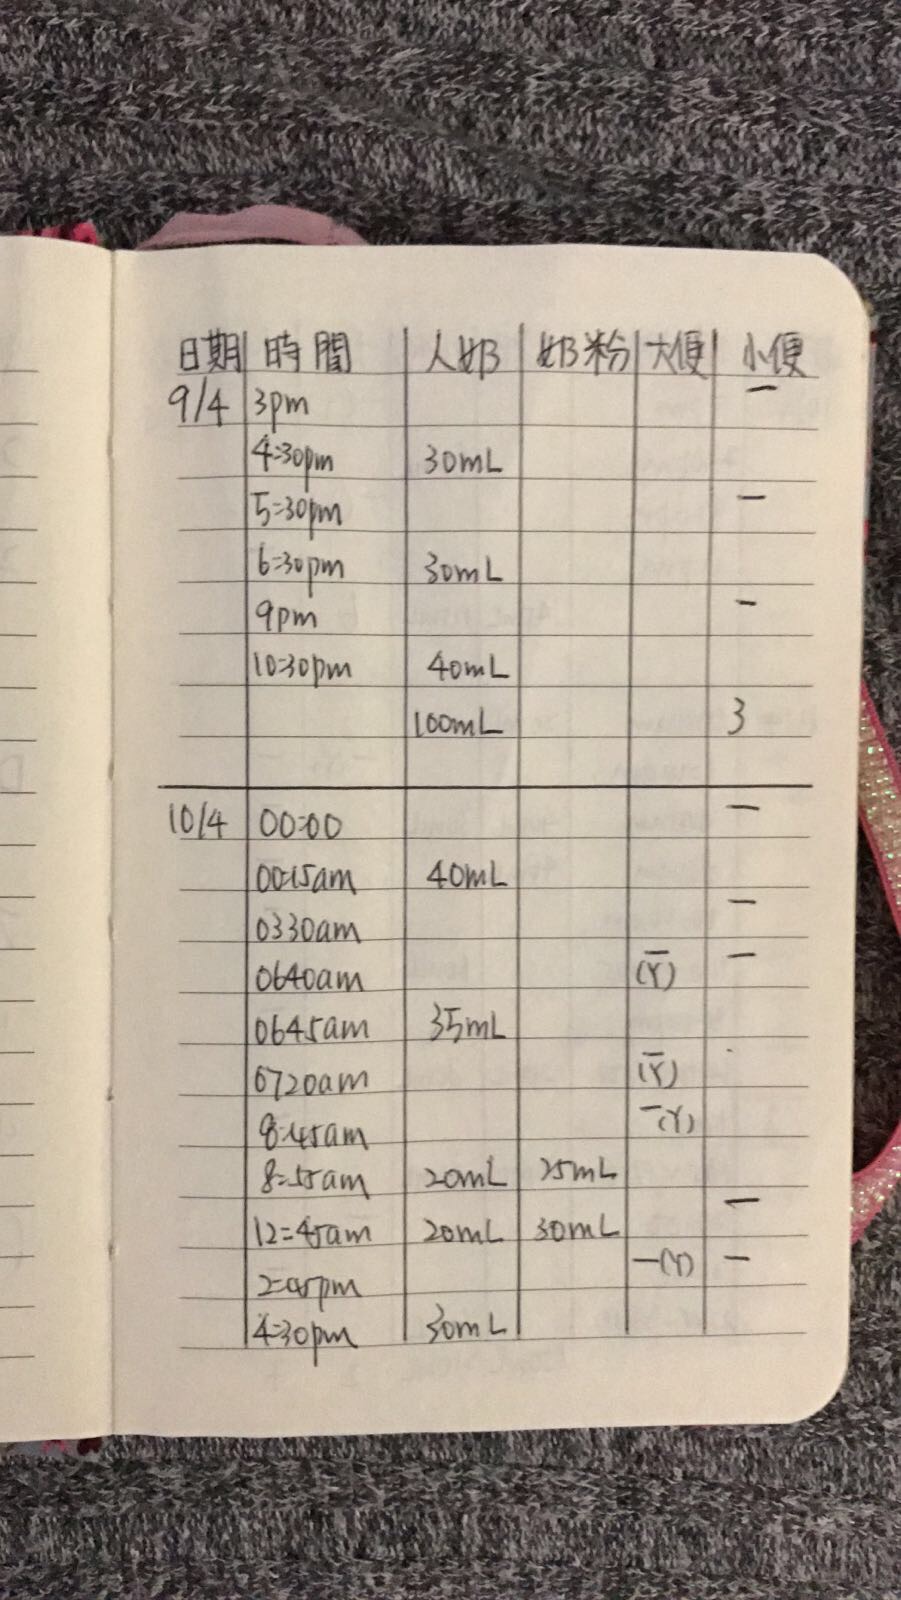 日期 時間 人奶 奶粉 大便 小便
9/4 3pm 一
4:30pm 30mL
5:30pm 一
6:30pm 30mL
9pm 一
10:30pm 40mL
100mL 3
10/4 00:00 一
00:15am 40mL
0330am 一
0640am 一(Y) 一
0645am 35mL
0720am 一(Y)
8:45am 一(Y)
8:55am 20mL 25mL
12:45am 20mL 30mL 一
2:45pm 一(Y) 一
4:30pm 30mL